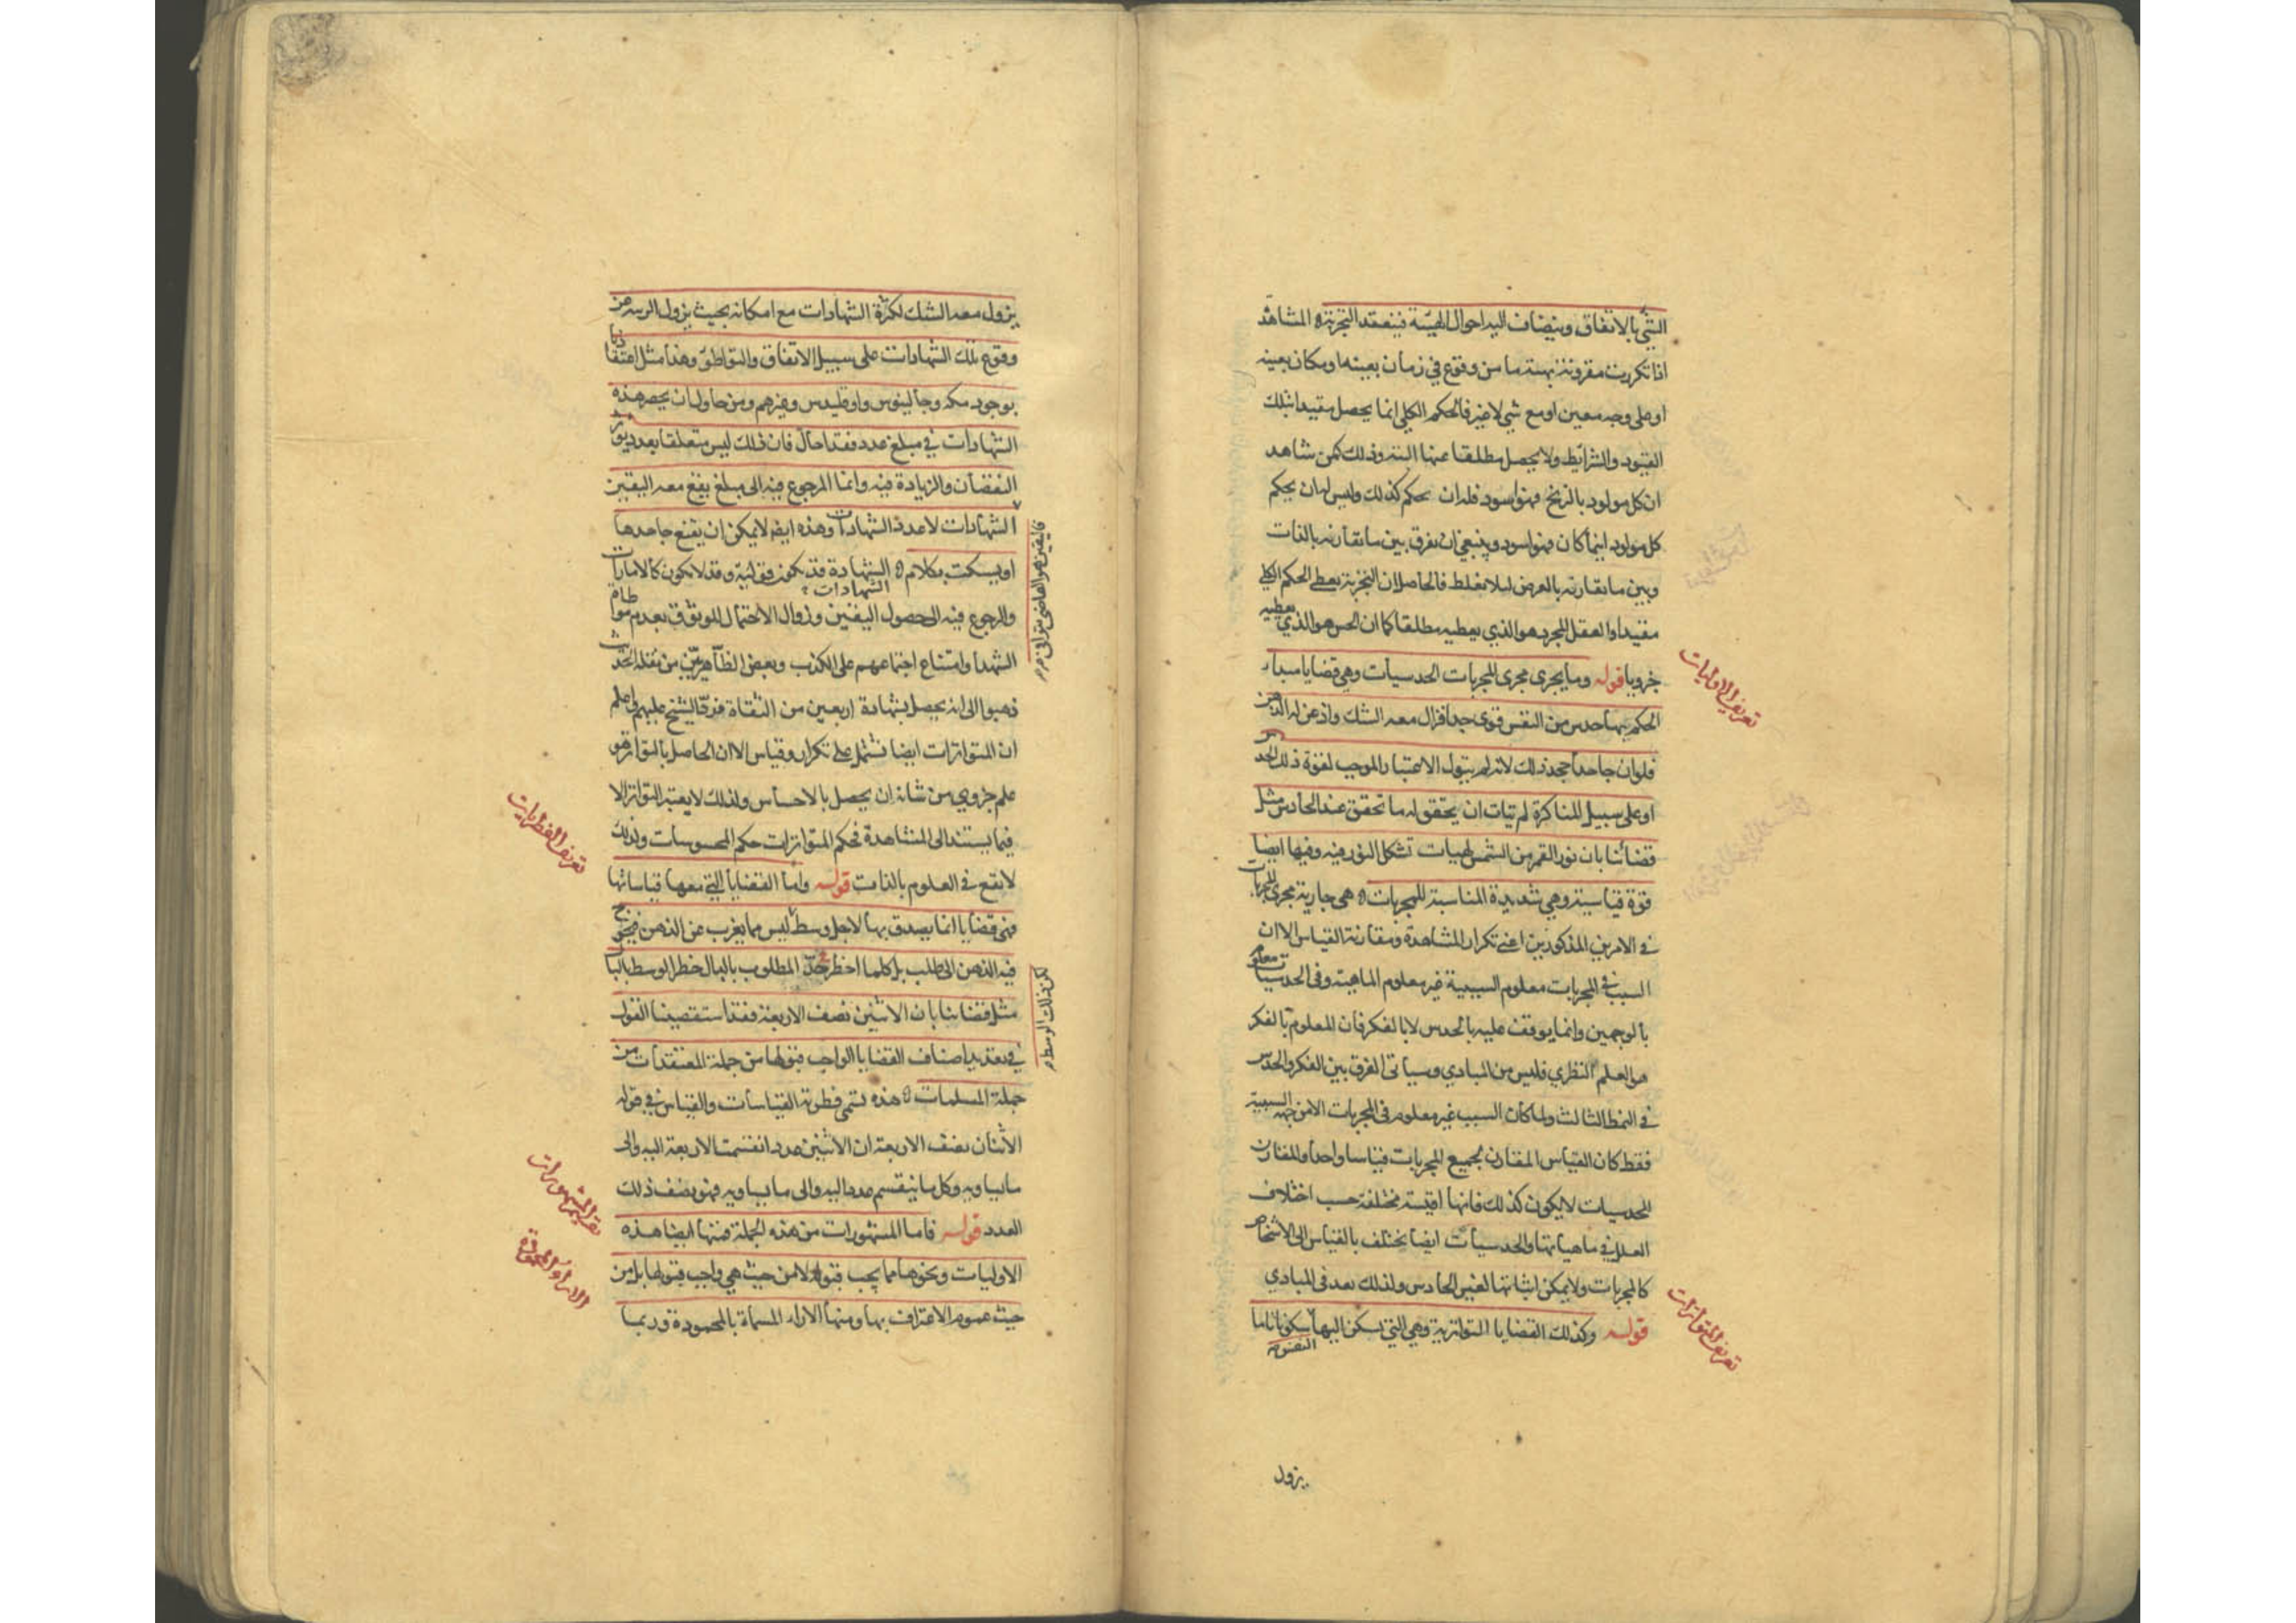 الشيء بالاتفاق وينضاف اليه احوال الهيئة فينعقد التجربة ٥ المشاهدة
اذا تكررت مقرونة بهيئة ما من وقوع في زمان بعينه او مكان بعينه
او على وجه معين او مع شي لا غير فالحكم الكلي انما يحصل مقيدا بتلك
القيود والشرايط ولا يحصل مطلقا عنها البتة وذلك كمن شاهد
ان كل مولود بالزنج فهو اسود فله ان يحكم كذلك وليس له ان يحكم
كل مولود اينما كان فهو اسود وينبغي ان يفرق بين ما يقارنه بالذات
وبين ما يقارنه بالعرض لئلا يغلط فالحاصل ان التجربة يعطى الحكم الكلي
مقيدا والعقل المجرد هو الذي يعطيه مطلقا كما ان الحس هو الذي يعطيه
جزويا قوله وما يجرى مجرى المجربات الحدسيات وهي قضايا مبداء
الحكم بها حدس من النفس قوى جدا فزال معه الشك واذعن له الذهن
فلو ان جاحدا جحد ذلك لانه لم يتول الاعتبار الموجب لقوة ذلك الحدس
او على سبيل المناكرة لم يتات ان يحقق له ما تحقق عند الحادس مثل
قضائنا بان نور القمر من الشمس لهيات تشكل النور فيه وفيها ايضا
قوة قياسية وهي شديدة المناسبة للمجربات ٥ هى جارية مجرى المجربات
في الامرين المذكورين اعني تكرار المشاهدة ومقارنة القياس الا ان
السبب في المجربات معلوم السببية غير معلوم الماهية وفى الحدسيات معلوم
بالوجهين وانما يوقف عليه بالحدس لا بالفكر فان المعلوم بالفكر
هو العلم النظري فليس من المبادي وسياتى الفرق بين الفكر والحدس
في النمط الثالث ولما كان السبب غير معلوم فى المجربات الا من جهة السببية
فقط كان القياس المقارن لجميع المجربات قياسا واحدا والمقارن
للحدسيات لا يكون كذلك فانها اقيسة مختلفة حسب اختلاف
العلل في ماهياتها والحدسيات ايضا يختلف بالقياس الى الاشخاص
كالمجربات ولا يمكن اثباتها لغير الحادس ولذلك يعد فى المبادي
قوله وكذلك القضايا المتواترية وهي التي تسكن اليها النفس سكونا تاما
يزول
تعريف الاوليات
تعريف المتواترات
يزول معه الشك لكثرة الشهادات مع امكانه بحيث يزول الريبة عن
وقوع تلك الشهادات على سبيل الاتفاق والتواطؤ وهذا مثل اعتقادنا
بوجود مكه وجالينوس واوقليدس وغيرهم ومن حاول ان يحصر هذه
الشهادات في مبلغ عدد فقد احال فان ذلك ليس متعلقا بعدد يوثر
النقصان والزيادة فيه وانما المرجوع فيه الى مبلغ يقع معه اليقين
الشهادات لا عدد الشهادات وهذه ايضا لا يمكن ان يقنع جاحدها
او يسكت بكلام ٥ الشهادة قد يكون قولية وقد لا يكون كالامارات
والرجوع فيه الى حصول اليقين وزوال الاحتمال للوثوق بعدم مواطاة
الشهدا وامتناع اجتماعهم على الكذب وبعض الظاهريين من نقلة الحديث
ذهبوا الى انه يحصل بشهادة اربعين من الثقاة فرد الشيخ عليهم واعلم
ان المتواترات ايضا تشتمل على تكرار وقياس الا ان الحاصل بالتواتر هو
علم جزوي من شانه ان يحصل بالاحساس ولذلك لا يعتبر التواتر الا
فيما يستند الى المشاهدة فحكم المتواترات حكم المحسوسات ولذلك
لا تقع في العلوم بالذات قوله واما القضايا التي معها قياساتها
فهى قضايا انما يصدق بها لاجل وسط ليس مما يعزب عن الذهن فيحوج
فيه الذهن الى طلب بل كلما اخطر حدّ المطلوب بالبال خطر الوسط بالبال
مثل قضائنا بان الاثنين نصف الاربعة فقد استقصينا القول
في تعديد اصناف القضايا الواجب قبولها من جملة المعتقدات من
جملة المسلمات ٥ هذه تسمى فطرية القياسات والقياس في قوله
الاثنان نصف الاربعة ان الاثنين عدد انقسمت الاربعة اليه والى
ما يساويه وكل ما ينقسم عدد اليه والى ما يساويه فهو نصف ذلك
العدد قوله فاما المشهورات من هذه الجملة فمنها ايضا هذه
الاوليات ونحوها مما يجب قبوله لا من حيث هي واجب قبولها بل من
حيث عموم الاعتراف بها ومنها الاراء المسماة بالمحمودة وربما
فاليقين هو القاضى بتوافى
لكن ذلك الوسط
تعريف الفطريات
تعريف المشهورات
الاراء المحمودة